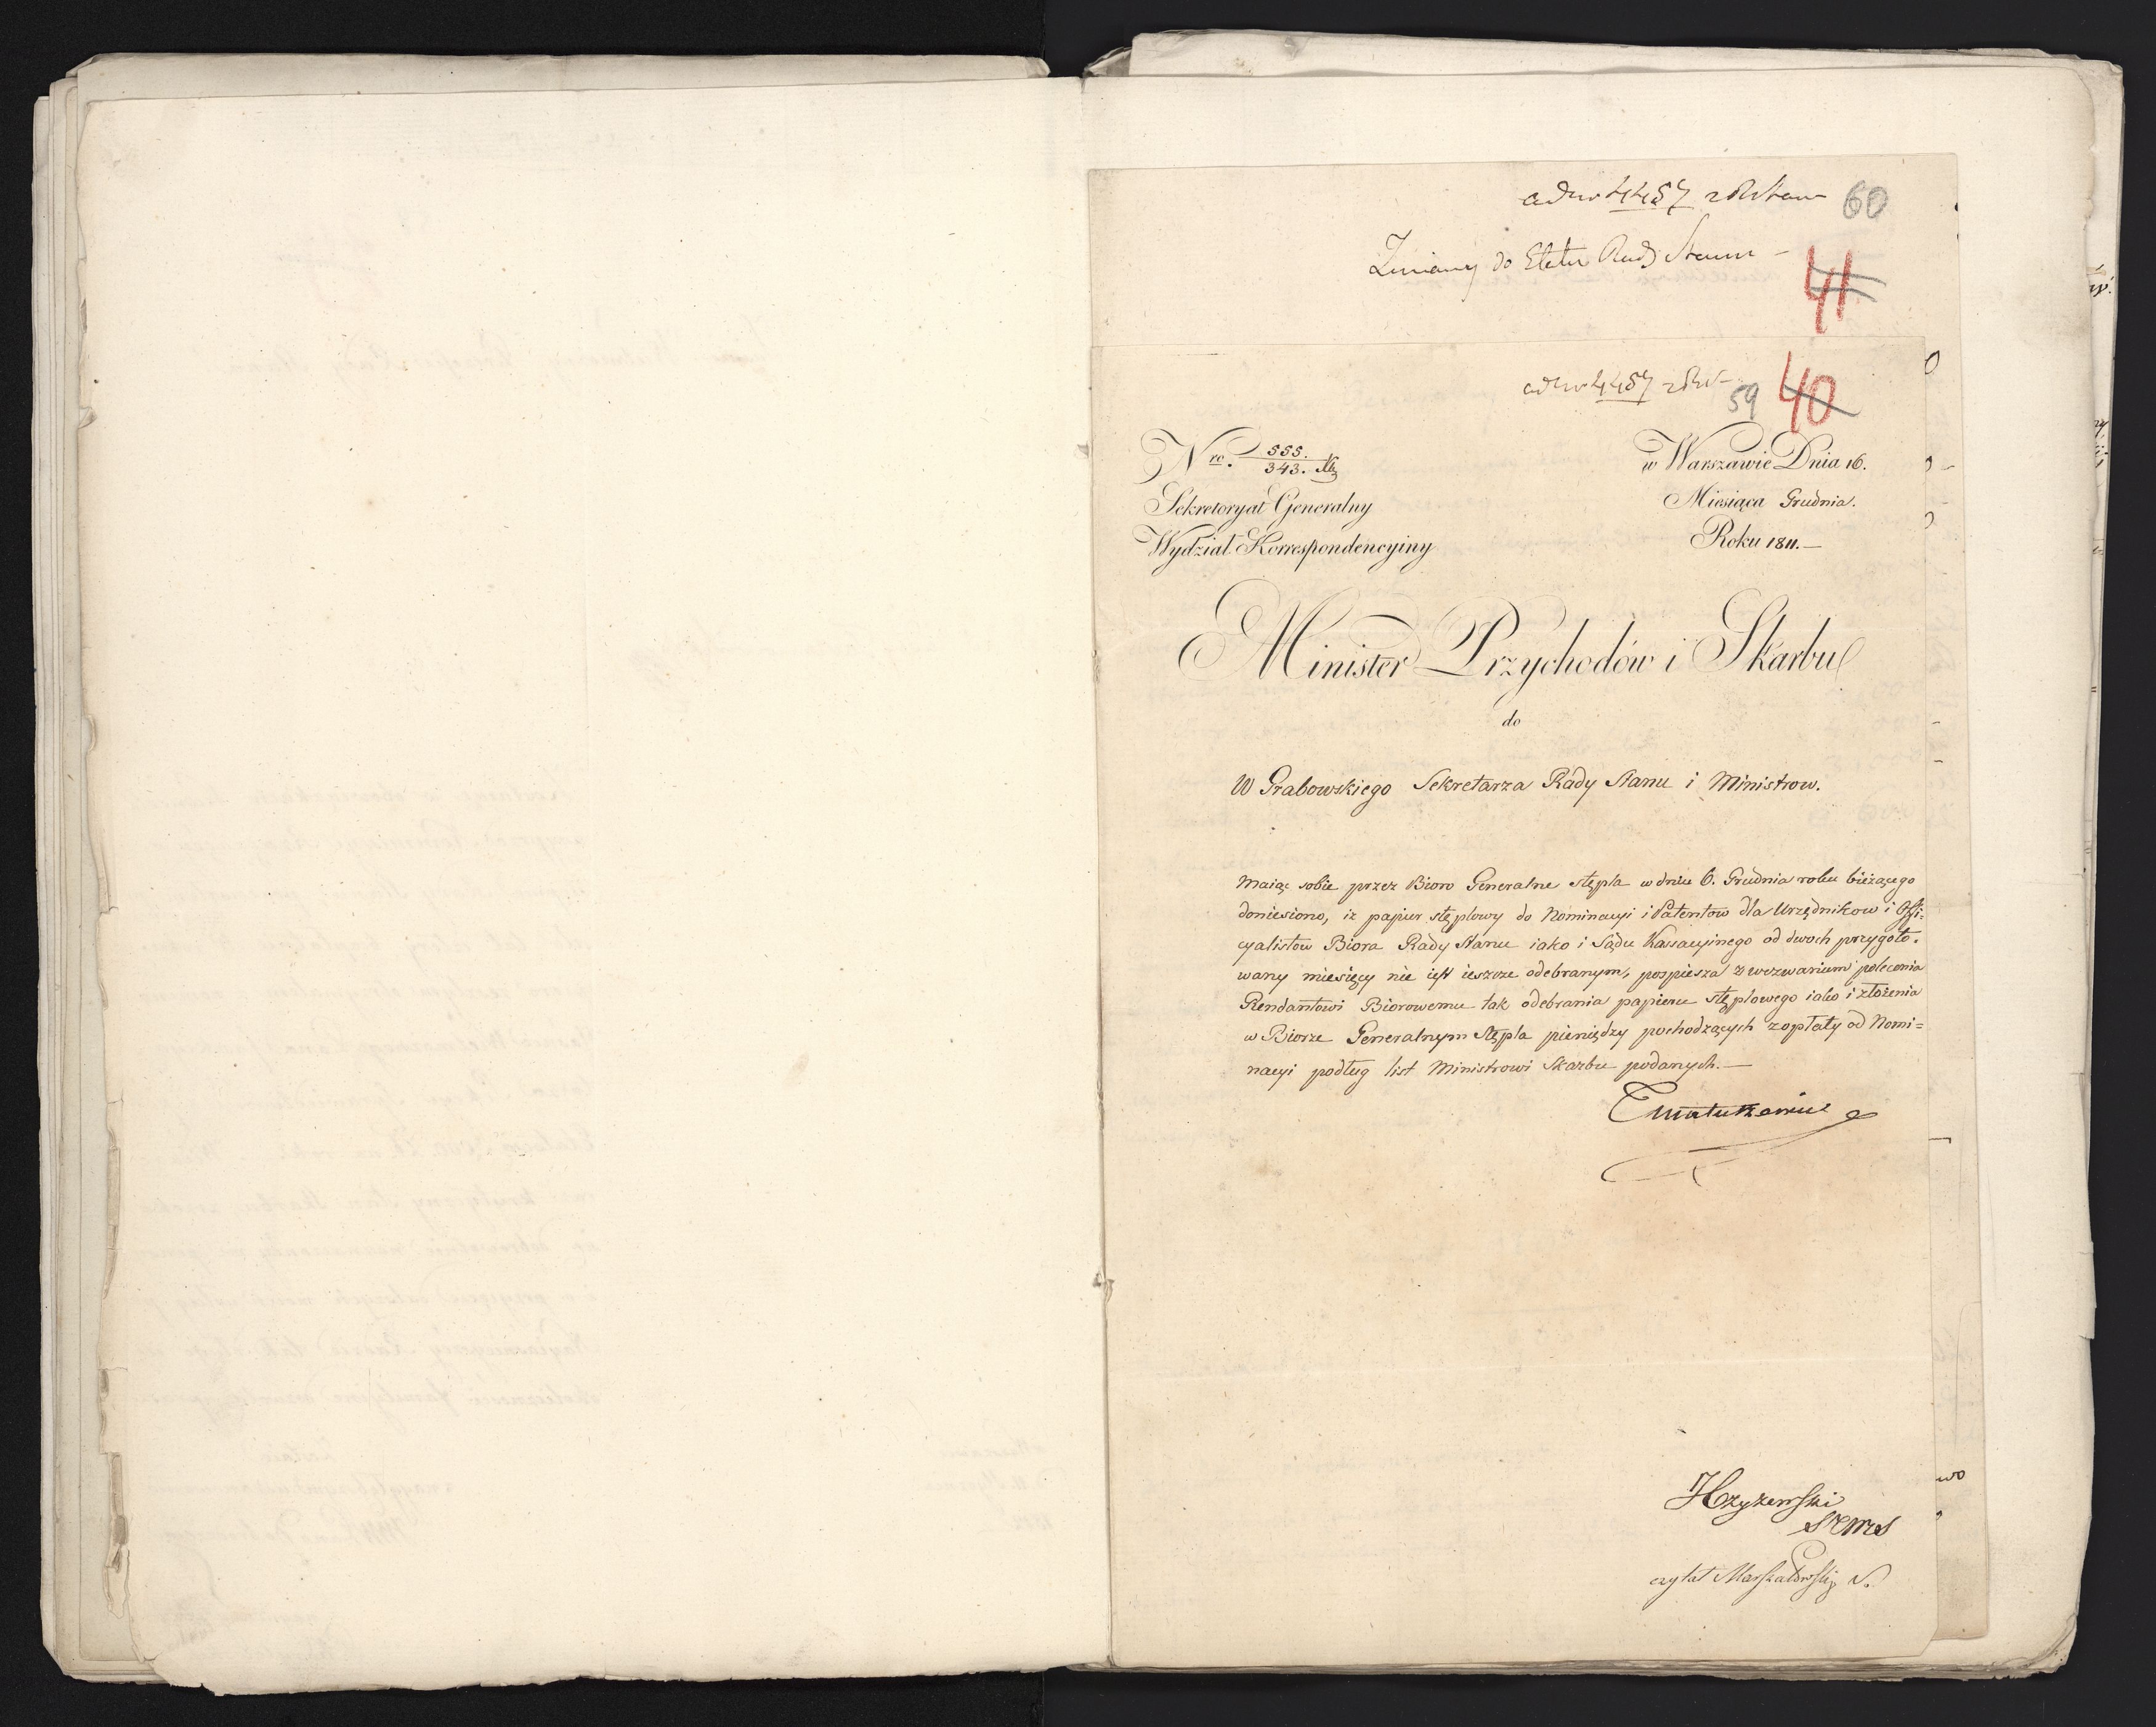 60
Zmiany do Etatu Rady Stanu -
41
59
40
Nro. 555. / 343.
w Warszawie Dnia 16.
Sekretoryat Generalny
Miesiąca Grudnia.
Wydział Korrespondencyiny
Roku 1811.—
Minister Przychodów i Skarbu
do
W Grabowskiego Sekretarza Rady Stanu i Ministrow.
Maiąc sobie przez Bioro Generalne stępla w dniu 6. Grudnia roku bieżącego
doniesiono, iż papier stęplowy do Nominacyi i Patentow dla Urzędnikow i Offi-
cyalistow Biora Rady Stanu iako i Sądu Kassacyinego od dwoch przygoto-
wany miesięcy nie iest ieszcze odebranym, pospiesza z wezwaniem polecenia
Rendantowi Biorowemu tak odebrania papieru stęplowego iako i złożenia
w Biorze Generalnym Stępla pieniędzy pochodzących z opłaty od Nomi=
nacyi podług list Ministrowi Skarbu podanych.—
Matuszewic
czytał Marszałowski